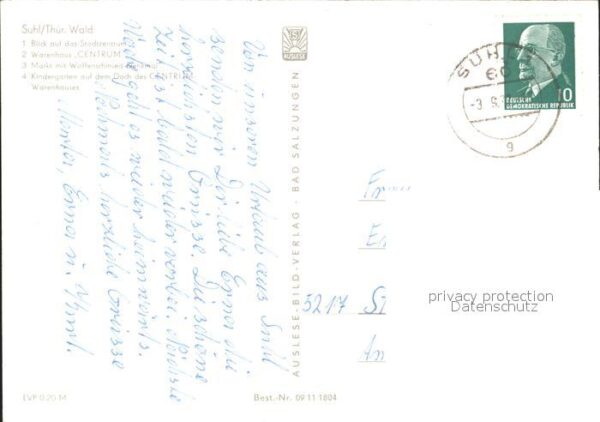 Suhl/Thür. Wald
1 Blick auf das Stadtzentrum
2 Warenhaus „CENTRUM"
3 Markt mit Waffenschmied-Denkmal
4 Kindergarten auf dem Dach des CENTRUM-
Warenhauses
Von unserem Urlaub aus Suhl
senden wir Dir liebe Erna die
herzlichsten Grüsse. Die schöne
Zeit ist bald wieder vorbei. Nächste
Woche geht es wieder heimwärts.
Nochmals herzliche Grüsse
Erna u.
AUSLESE
AUSLESE-BILD-VERLAG · BAD SALZUNGEN
SUHL
60
-3. 9.
g
10
DEUTSCHE
DEMOKRATISCHE REPUBLIK
5217 St
privacy protection
Datenschutz
EVP 0.20 M
Best.-Nr. 09 11 1604